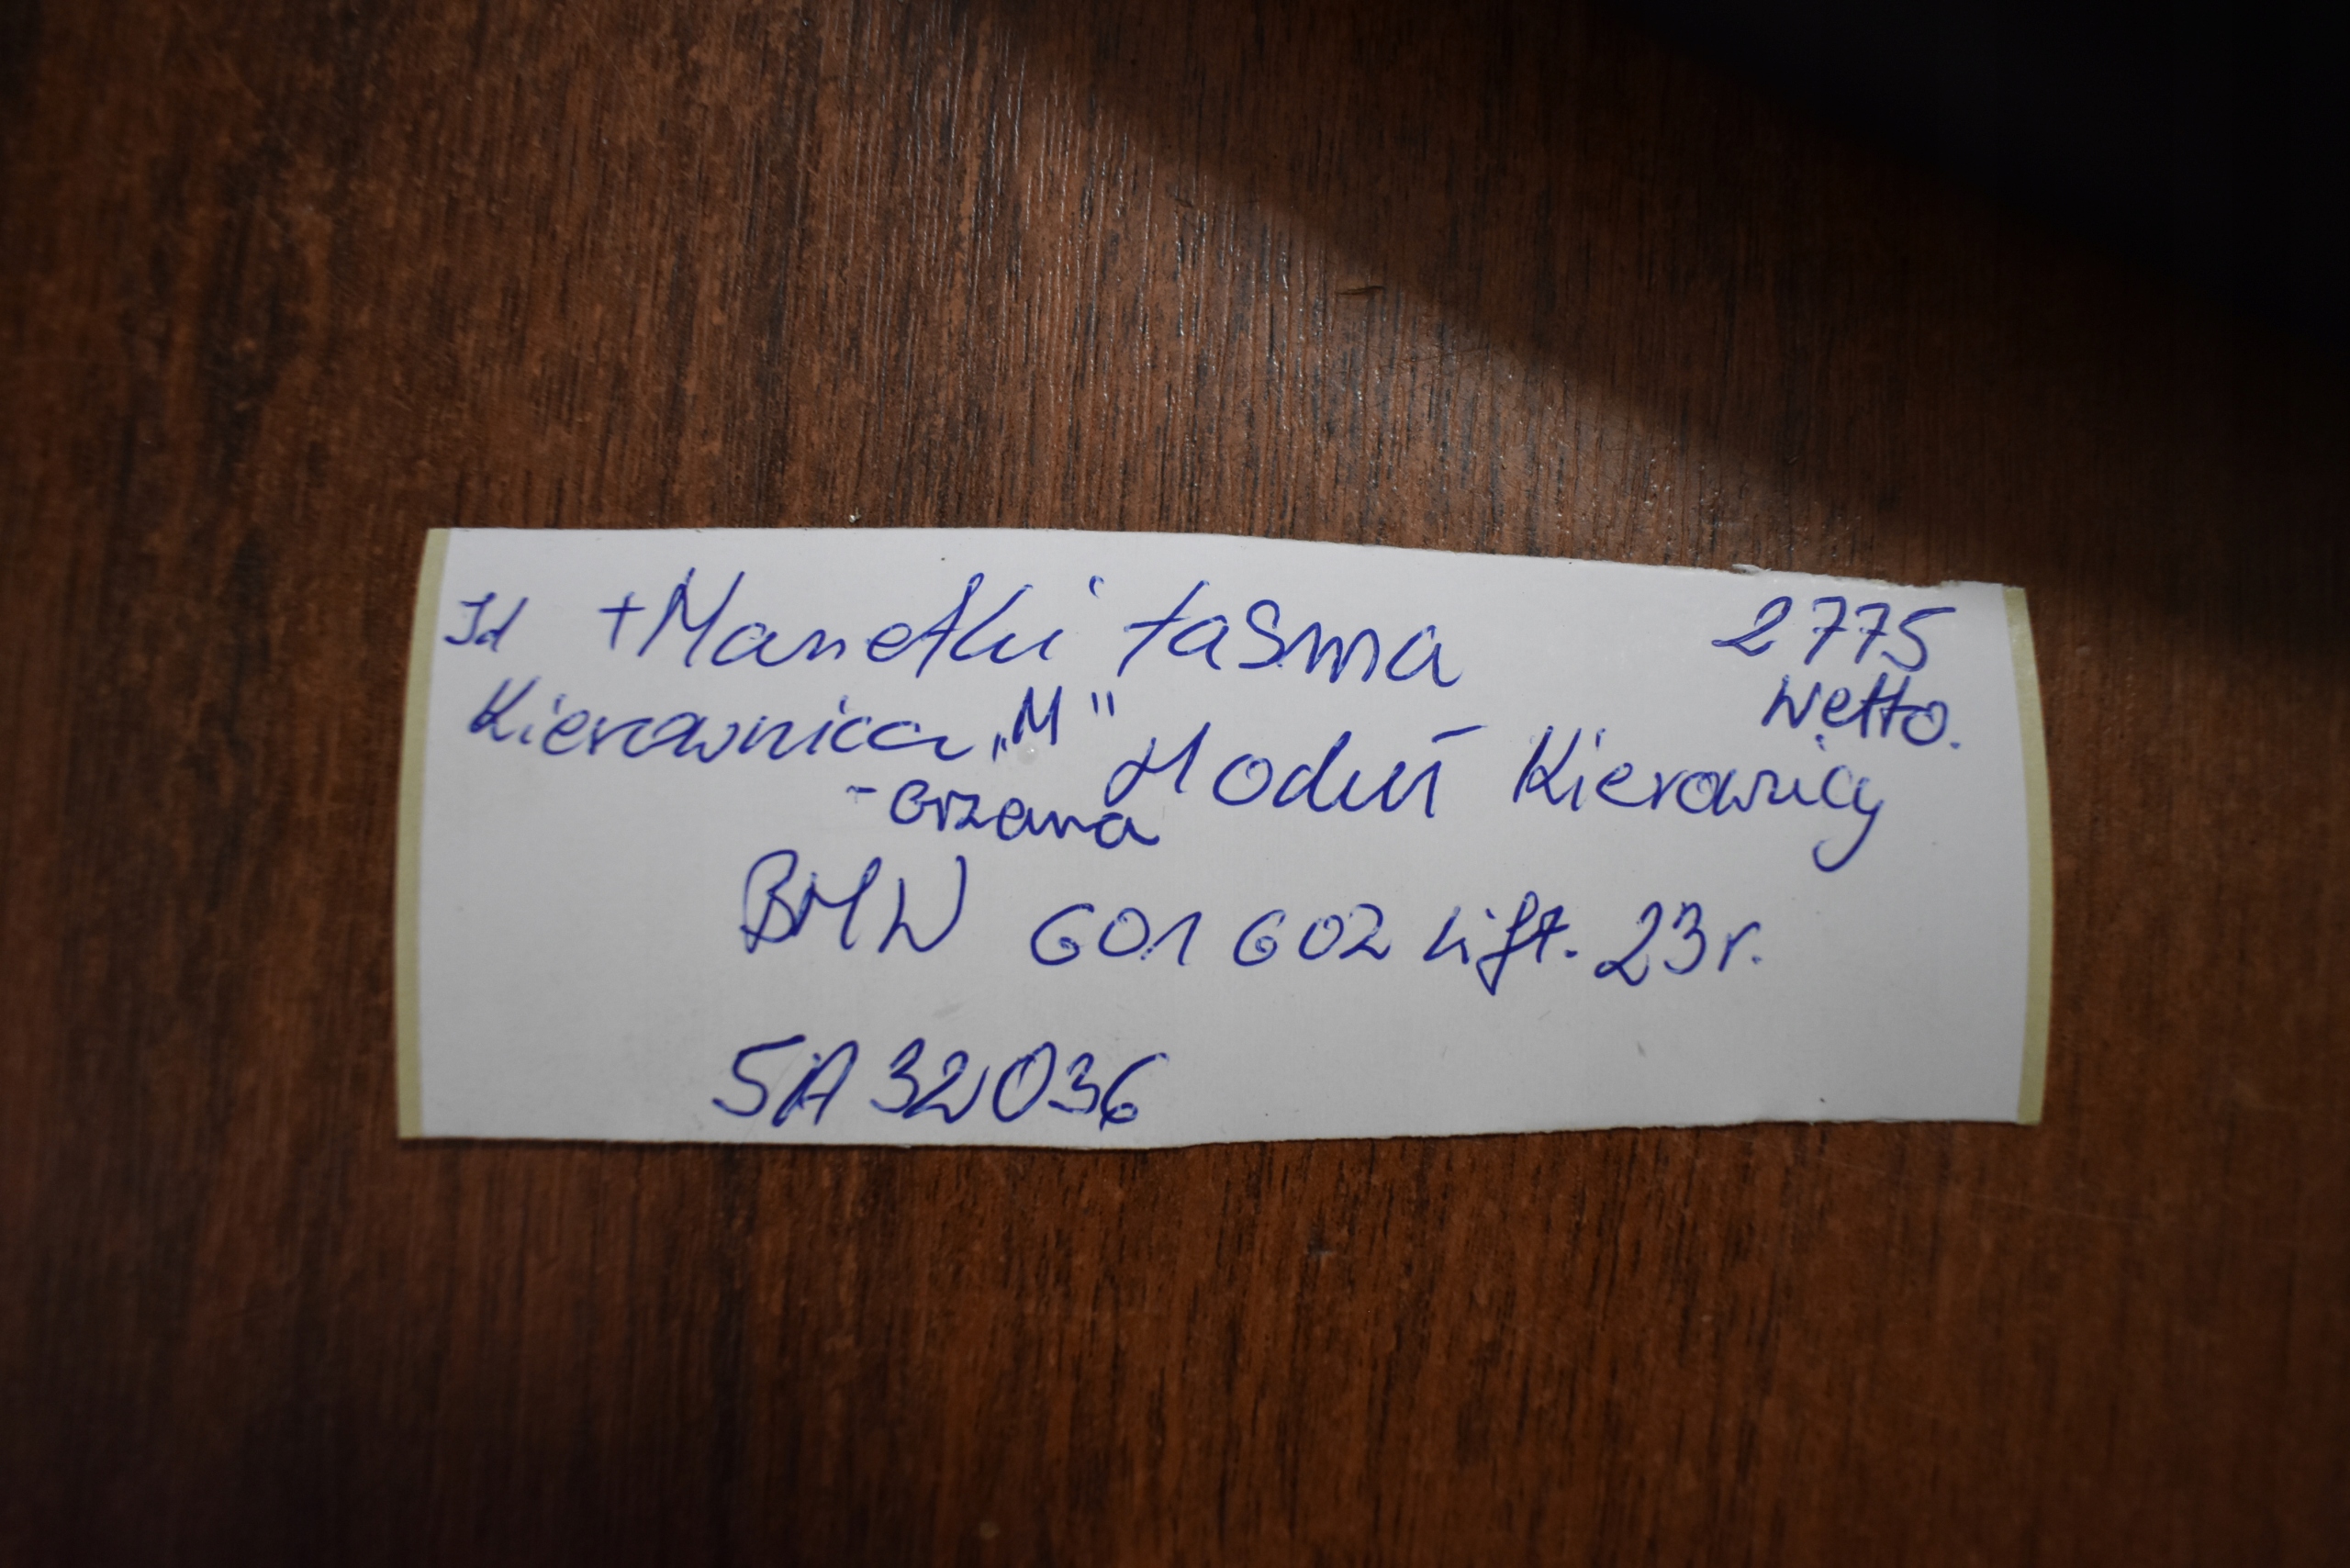 Id +Manetki taśma 2775
Netto.
Kierownica „M" Moduł Kierownicy
- Grzana
BMW G01 G02 Lift. 23r.
5A32036